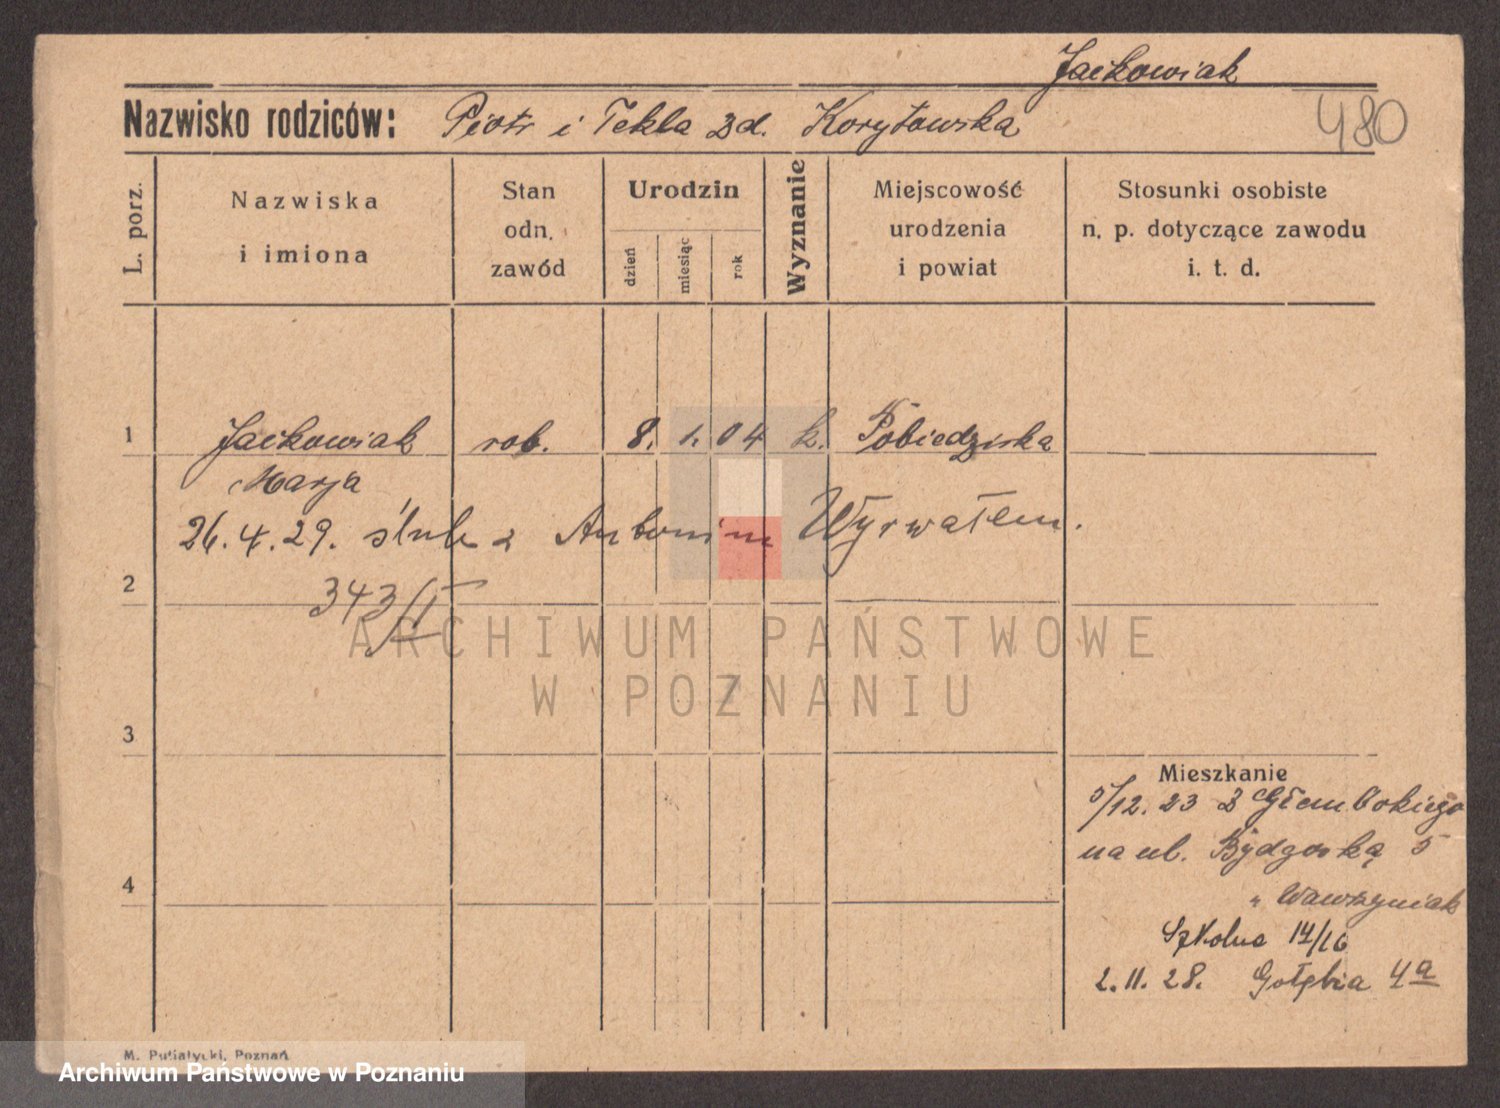 Jackowiak
Nazwisko rodziców: Piotr i Tekla zd. Korytowska
480
L. porz.
Nazwiska
i imiona
Stan
odn.
zawód
Urodzin
dzień
miesiąc
rok
Wyznanie
Miejscowość
urodzenia
i powiat
Stosunki osobiste
n. p. dotyczące zawodu
i. t. d.
1
Jackowiak rob. 8. 1. 04 k. Pobiedziska
Marja
26.4.29. ślub z Antonim Wyrwałem.
2
343/II
ARCHIWUM PAŃSTWOWE
W POZNANIU
3
Mieszkanie
5/12. 23 z Głembokiego
na ul. Bydgoską 5
4
" Wawrzyniak
Szkolna 14/16
2.11.28. Gołębia 4a
M. Putiatycki, Poznań
Archiwum Państwowe w Poznaniu